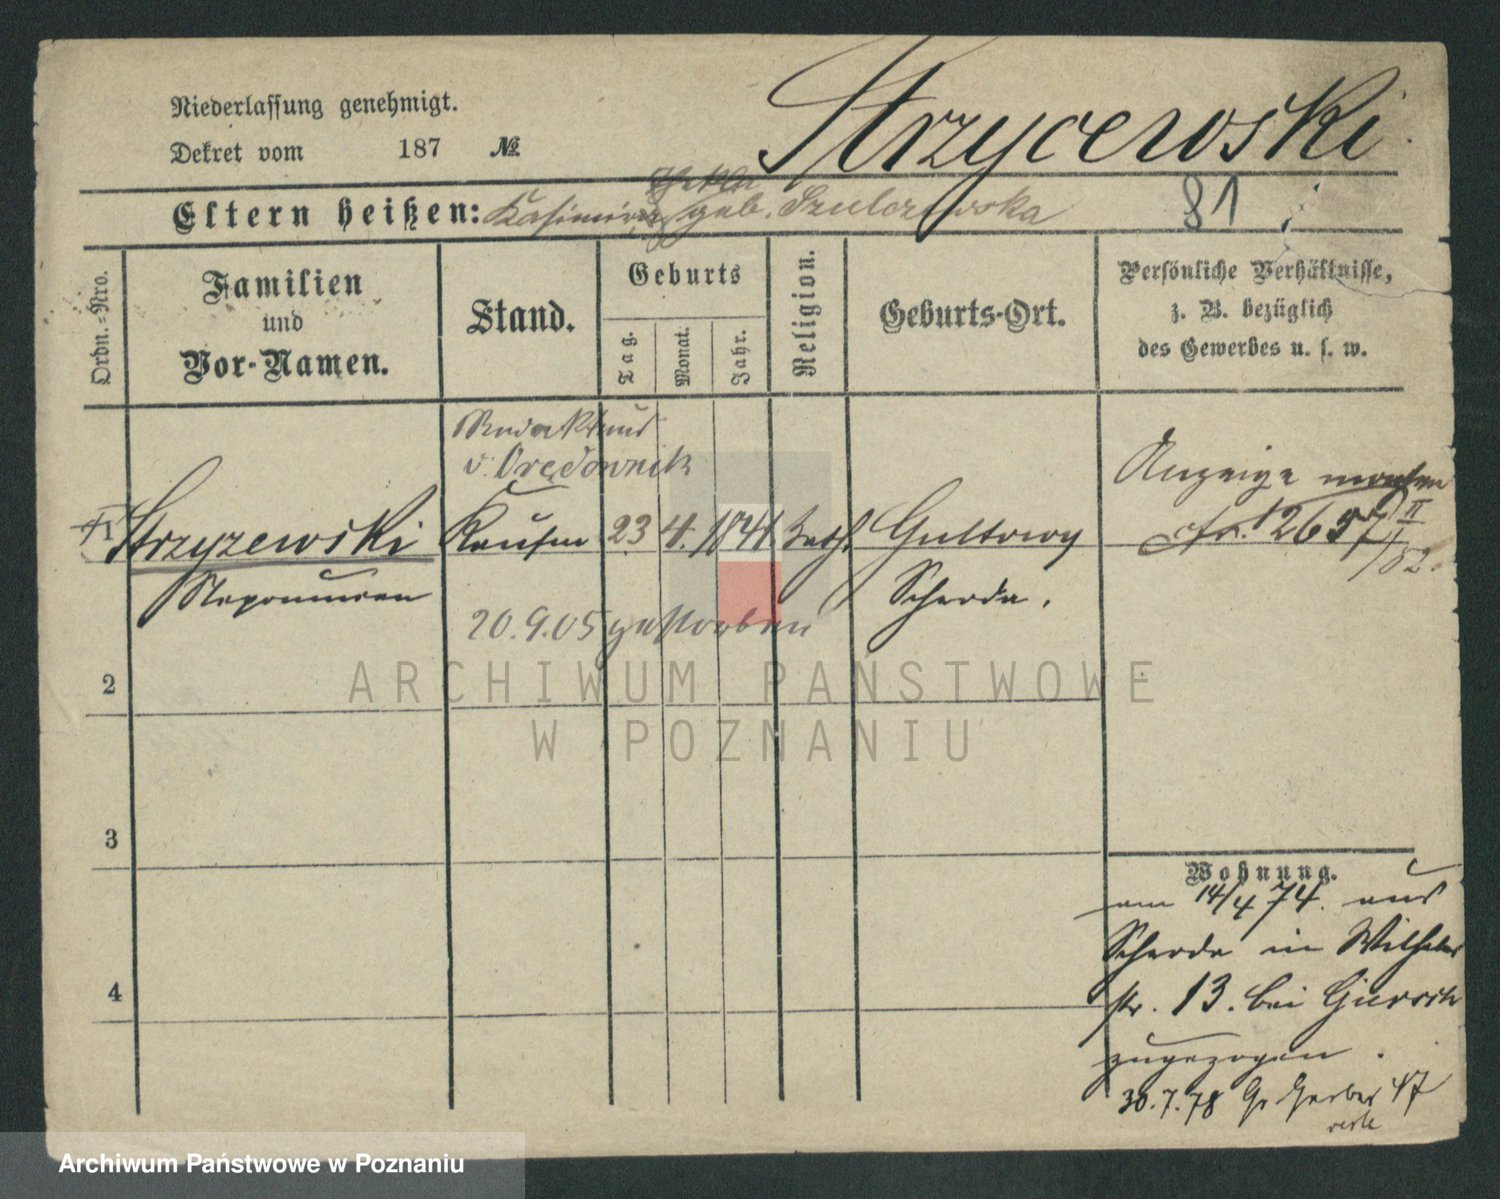 Niederlassung genehmigt.
Strzycewski
Dekret vom 187 №
Thekla
Eltern heißen: Kasimir geb. Szulczewska 81
Ordn.-Nro.
Familien
und
Vor-Namen.
Stand.
Geburts
Tag.
Monat.
Jahr.
Religion.
Geburts-Ort.
Persönliche Verhältnisse,
z. B. bezüglich
des Gewerbes u. s. w.
Redakteur
v. Orędownik
Anzeige
1 Strzyzewski Kaufm 23 4. 1841 kath. Gultowy
Nepomucen Schroda.
12657 II/82.
20.9.05 gestorben
2
3
4
Wohnung.
am 14/4 74. aus
Schroda in Wilhelm
str. 13. bei
zugezogen.
30.7.78 Gr Gerber 47
ARCHIWUM PAŃSTWOWE
W POZNANIU
Archiwum Państwowe w Poznaniu